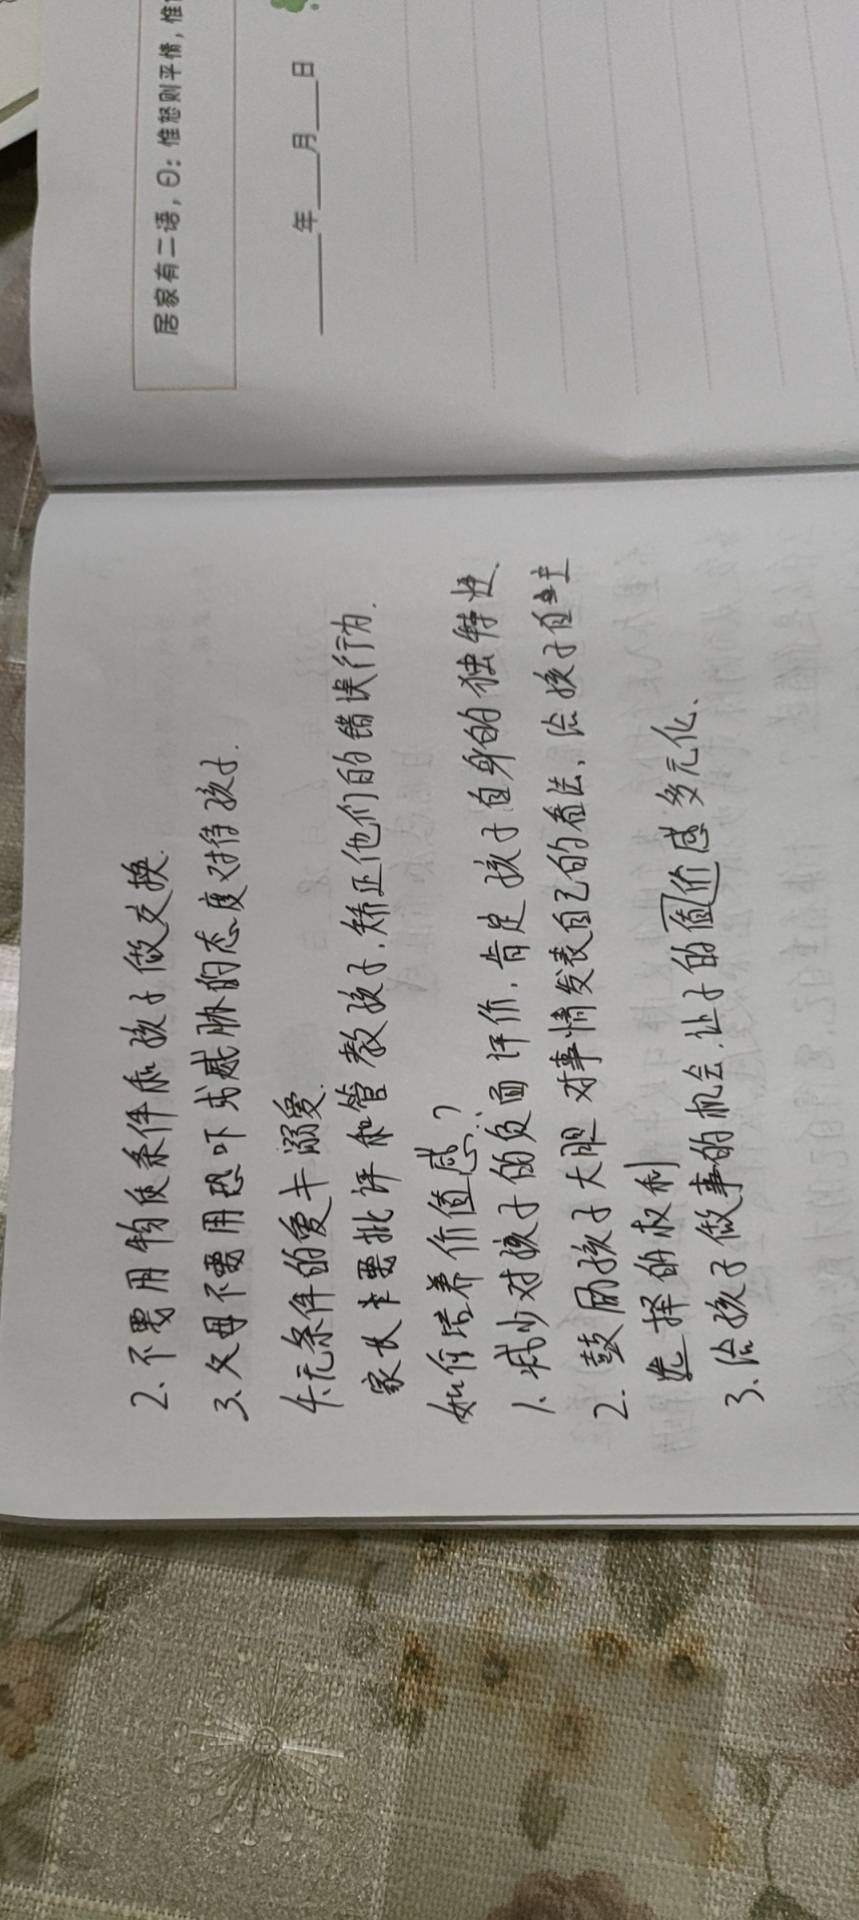 2. 不要用物质条件和孩子做交换.
3. 父母不要用恐吓或威胁的态度对待孩子.
4. 无条件的爱≠溺爱.
家长要批评和管教孩子, 矫正他们的错误行为.
如何培养价值感?
1. 减少对孩子的负面评价, 肯定孩子自身的独特性.
2. 鼓励孩子大胆对事情发表自己的看法, 给孩子自主
选择的权利
3. 给孩子做事的机会, 让子的值价感多元化、
居家有二语，曰：惟恕则平情，惟
年 月 日